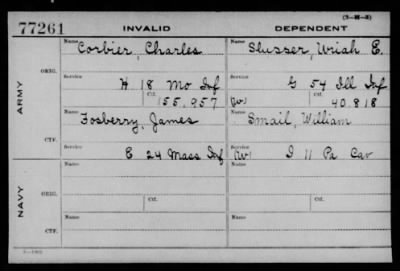 (3-M-3)
77261 INVALID DEPENDENT
Name Name
Corbier, Charles Slusser, Uriah E.
ORIG.
Service Service
H 18 Mo Inf G 54 Ill Inf
Ctf. Ctf.
155,957 (W) 40.818
ARMY
Name Name
Fosberry, James Smail, William
CTF.
Service Service
E 24 Mass Inf (W) I 11 Pa Cav
Name Name
NAVY
ORIG.
Ctf. Ctf.
Name Name
CTF.